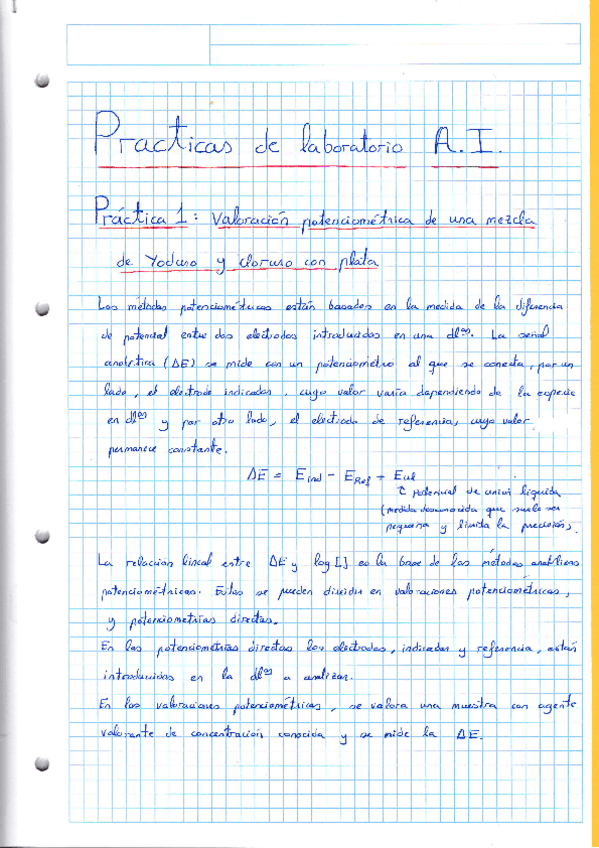 Practicas de laboratorio A.I.
Práctica 1: Valoración potenciométrica de una mezcla
de Yoduro y cloruro con plata
Los métodos potenciométricos están basados en la medida de la diferencia
de potencial entre dos electrodos introducidos en una dlᵒⁿ. La señal
analítica (ΔE) se mide con un potenciómetro al que se conecta, por un
lado, el electrodo indicador, cuyo valor varía dependiendo de la especie
en dlᵒⁿ y por otro lado, el electrodo de referencia, cuyo valor
permanece constante.
ΔE = E_ind - E_Ref + E_ul
potencial de unión líquida
(medida desconocida que suele ser
pequeña y limita la precisión)
La relación lineal entre ΔE y log[] es la base de los métodos analíticos
potenciométricos. Estos se pueden dividir en valoraciones potenciométricas,
y potenciometrías directas.
En las potenciometrías directas los electrodos, indicador y referencia, están
introducidos en la dlᵒⁿ a analizar.
En las valoraciones potenciométricas, se valora una muestra con agente
valorante de concentración conocida y se mide la ΔE.